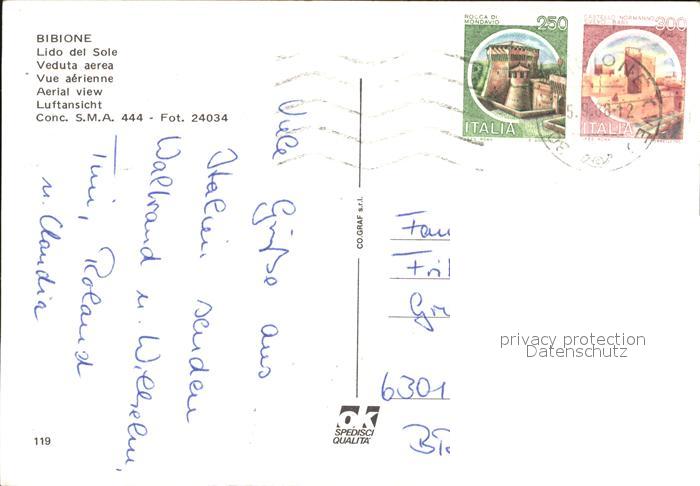 BIBIONE
Lido del Sole
Veduta aerea
Vue aérienne
Aerial view
Luftansicht
Conc. S.M.A. 444 - Fot. 24034
Viele Grüße aus
Italien senden
Waltraud u. Wilhelm,
Tini, Roland
u. Claudia
119
CO.GRAF s.r.l.
OK
SPEDISCI
QUALITÀ
ROCCA DI
MONDAVIO
250
ITALIA
CASTELLO NORMANNO
SVEVO, BARI
300
ITALIA
Fam
6301
privacy protection
Datenschutz